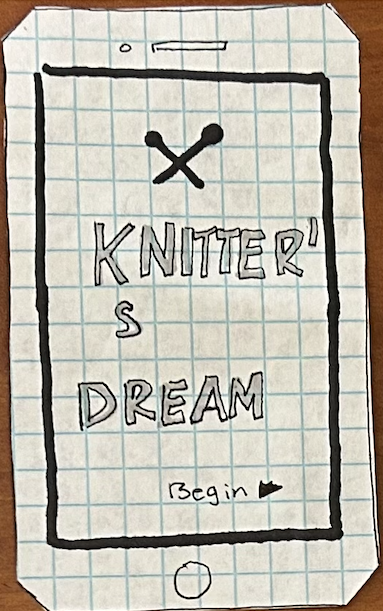 KNITTER'
S
DREAM
Begin